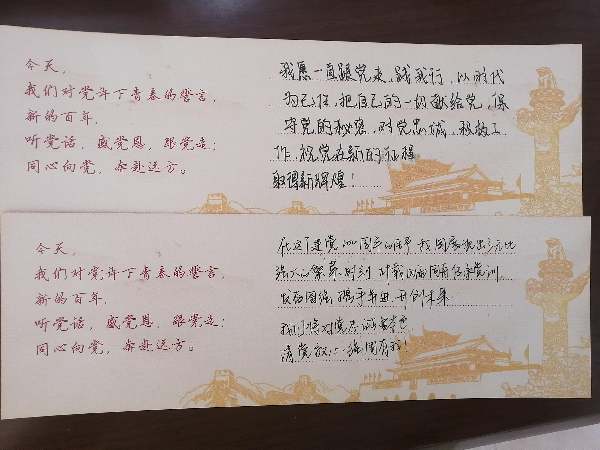 今天，
我们对党许下青春的誓言，
新的百年，
听党话，感党恩，跟党走；
同心向党，奔赴远方。
我愿一直跟党走，践我行，以时代
为己任，把自己的一切献给党，保
守党的秘密，对党忠诚，积极工
作，祝党在新的征程
取得新辉煌！
今天，
我们对党许下青春的誓言，
新的百年，
听党话，感党恩，跟党走；
同心向党，奔赴远方。
在这个建党100周年的
强大的繁荣时刻
发奋图强 携手并进 开创未来
我们将对党忠诚
请党放心 强国有我！